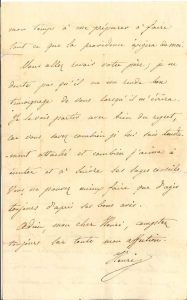 mon temps à me préparer à faire
tout ce que la providence exigera de moi.
Vous allez revoir votre père; je ne
doute pas qu'il ne me rende bon
témoignage de vous lorsqu'il m'écrira.
Je le vois partir avec bien du regret,
car vous savez combien je lui suis tendre-
ment attaché et combien j'aime à
imiter et à suivre ses sages conseils.
Vous ne pouvez mieux faire que d'agir
toujours d'après ses bons avis.
Adieu mon cher Henri, comptez
toujours sur toute mon affection.
Henri